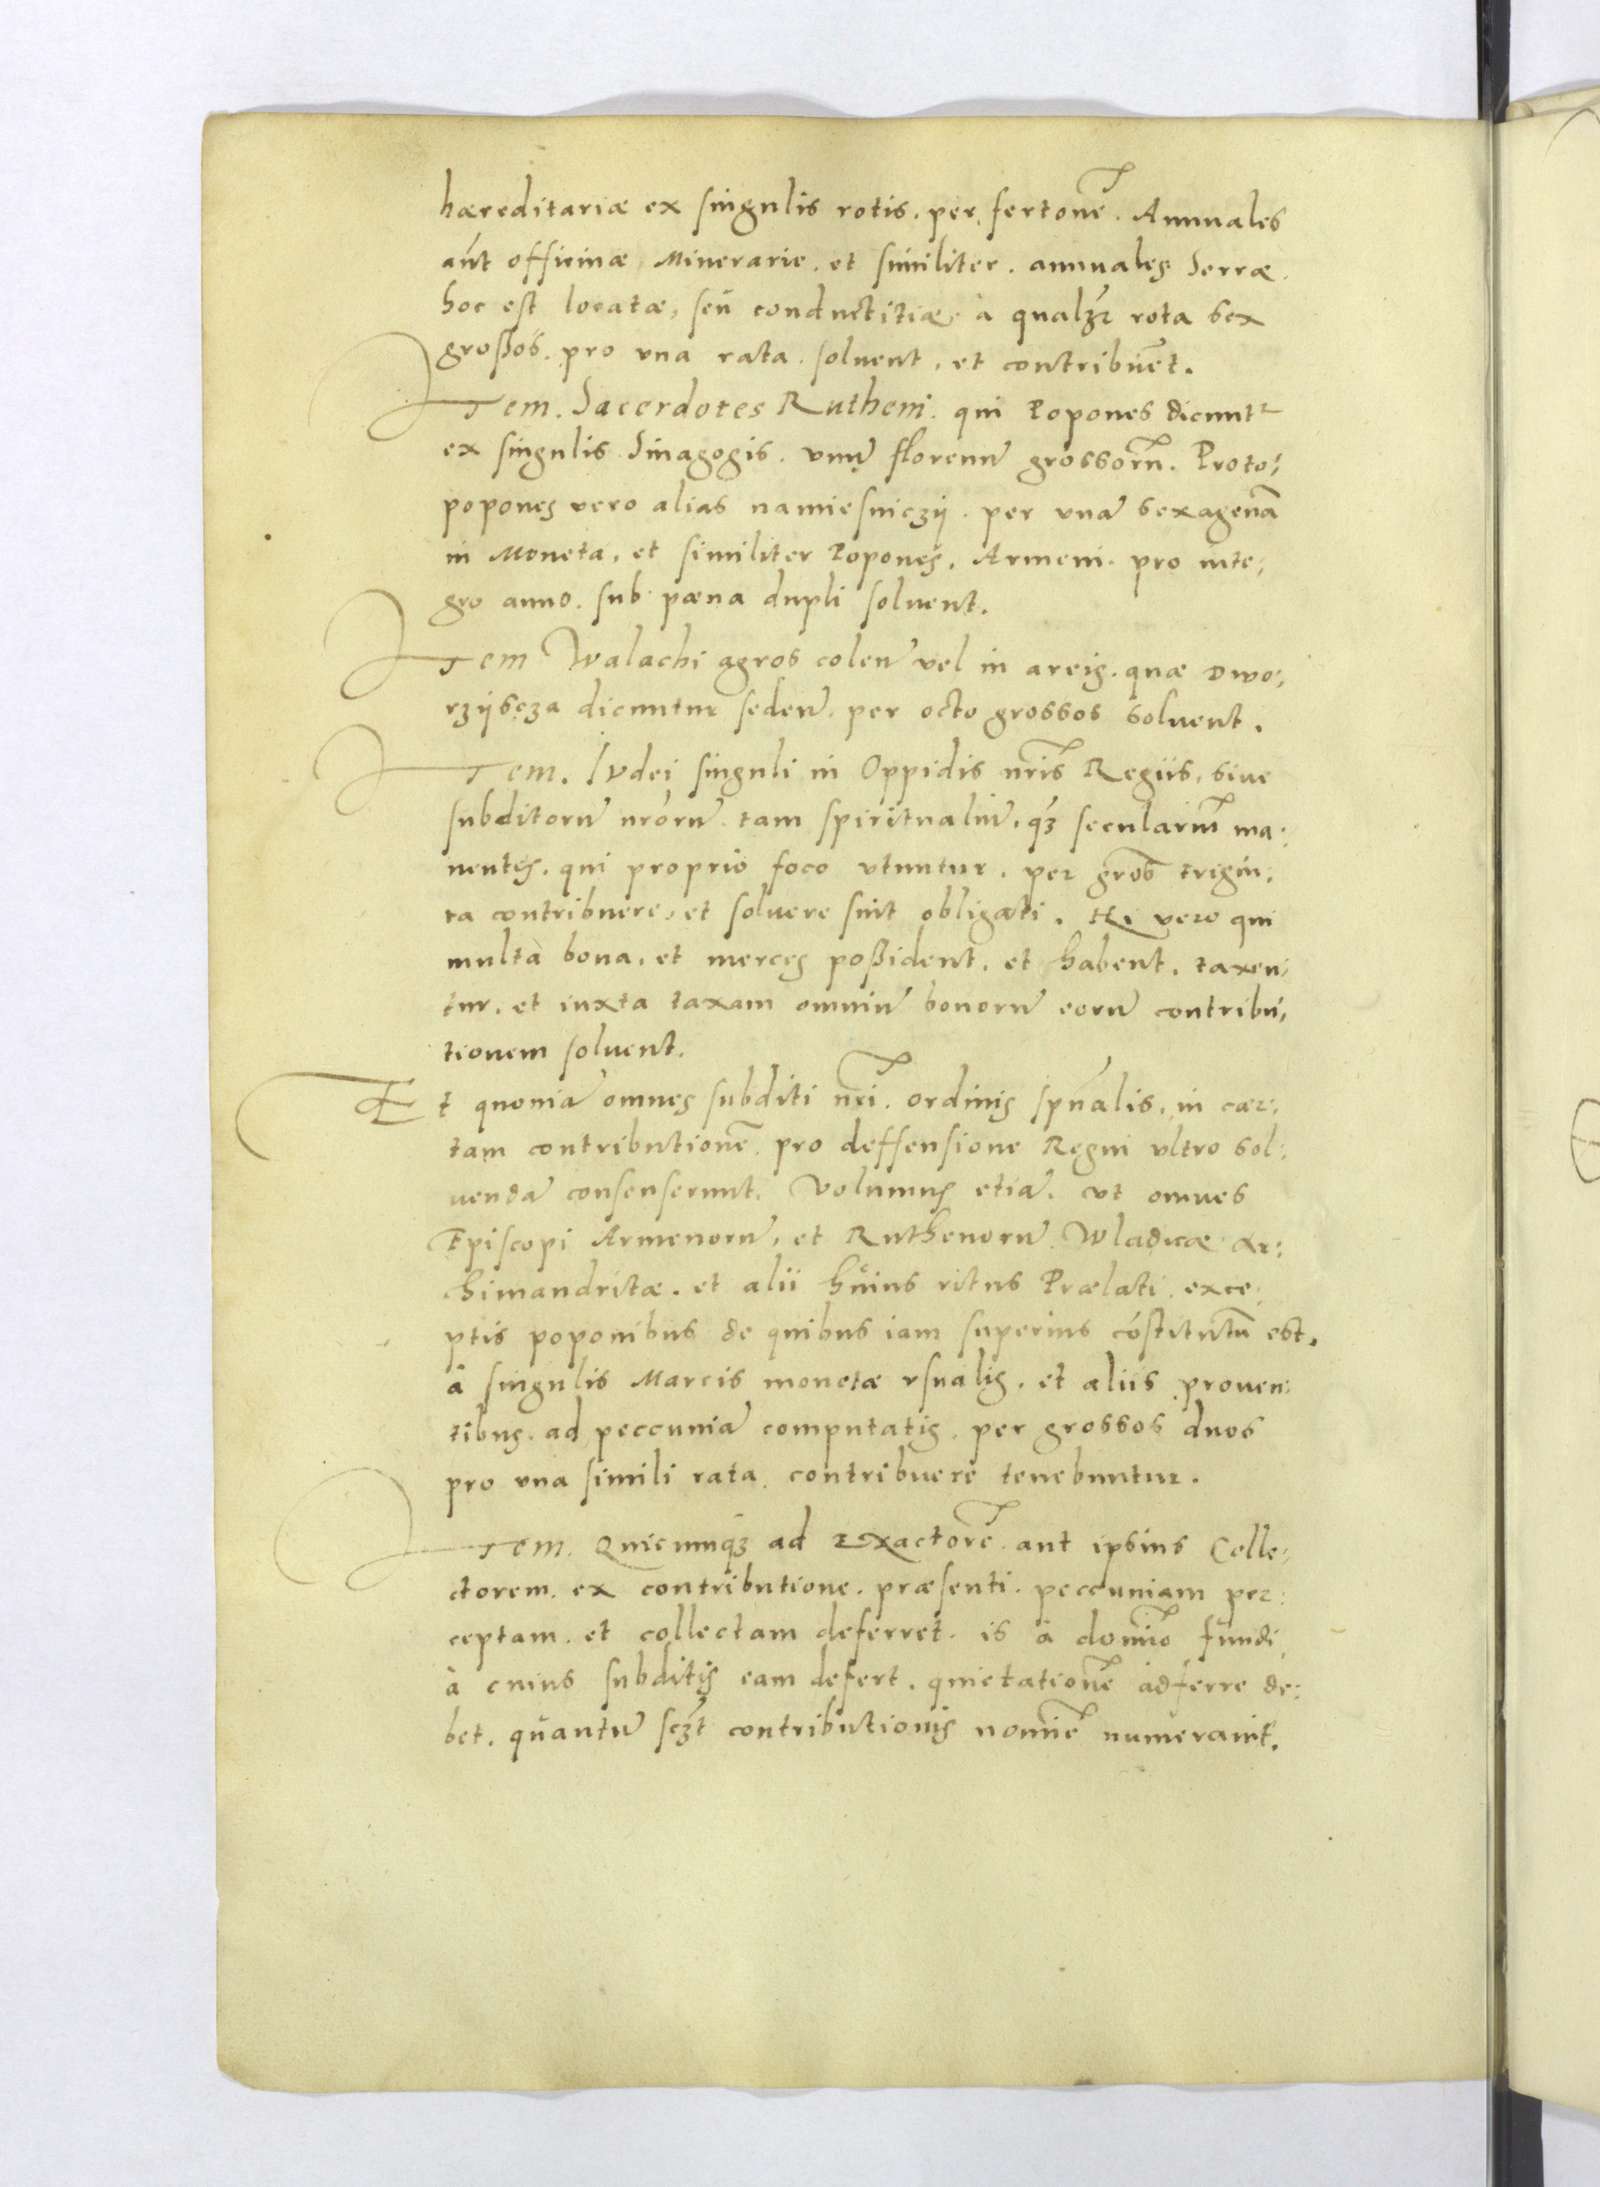 hæreditariæ ex singulis rotis. per fertonē. Annuales
aūt officinæ Minerarie. et similiter. annuales Serræ
hoc est locatæ, seu conductitiæ à qualzr rota sex
großos. pro vna rata solvent, et contribuēt.
Item. Sacerdotes Rutheni. qui Popones dicuntr
ex singulis Sinagogis. vnū florenū grossorū. Proto:
popones vero alias namiesniczij. per vnā sexagenā
in Moneta, et similiter Popones, Armeni. pro inte:
gro anno. sub pæna dupli soluent.
Item Walachi agros colen̄ vel in areis. quæ Dwo:
rzijscza dicuntur seden̄. per octo grossos soluent.
Item. Iudei singuli in Oppidis nr̄is Regiis, siue
subditorū nr̄orū tam spiritualiū. qz̄ seculariū ma:
nentes. qui proprio foco vtuntur. per gros̄ trigin:
ta contribuere, et soluere sint obligati. Hi vero qui
multa bona, et merces poßident, et habent, taxen:
tur. et iuxta taxam omniū bonorū eorū contribu:
tionem soluent.
Et quoniā omnes subditi nr̄i. ordinis spūalis, in cær:
tam contributionē pro deffensione Regni vltro sol:
uendā consenserunt. Volumus etiā. vt omnes
Episcopi Armenorū, et Ruthenorū Wladicæ Ar:
chimandritæ. et alii huius ritus Prælati. exce:
ptis poponibus de quibus iam superius cōstitutū est.
à singulis Marcis monetæ vsualis. et aliis prouen:
tibus. ad peccuniā computatis. per grossos duos
pro vna simili rata contribuere tenebuntur.
Item. Quicunqz ad Exactorē. aut ipsius Colle:
ctorem. ex contributione. præsenti. peccuniam per:
ceptam. et collectam deferret. is à domīo fundi
à cuius subditis eam defert. quietationē adferre de:
bet. quantū sczt contributionis nomīe numerauit.